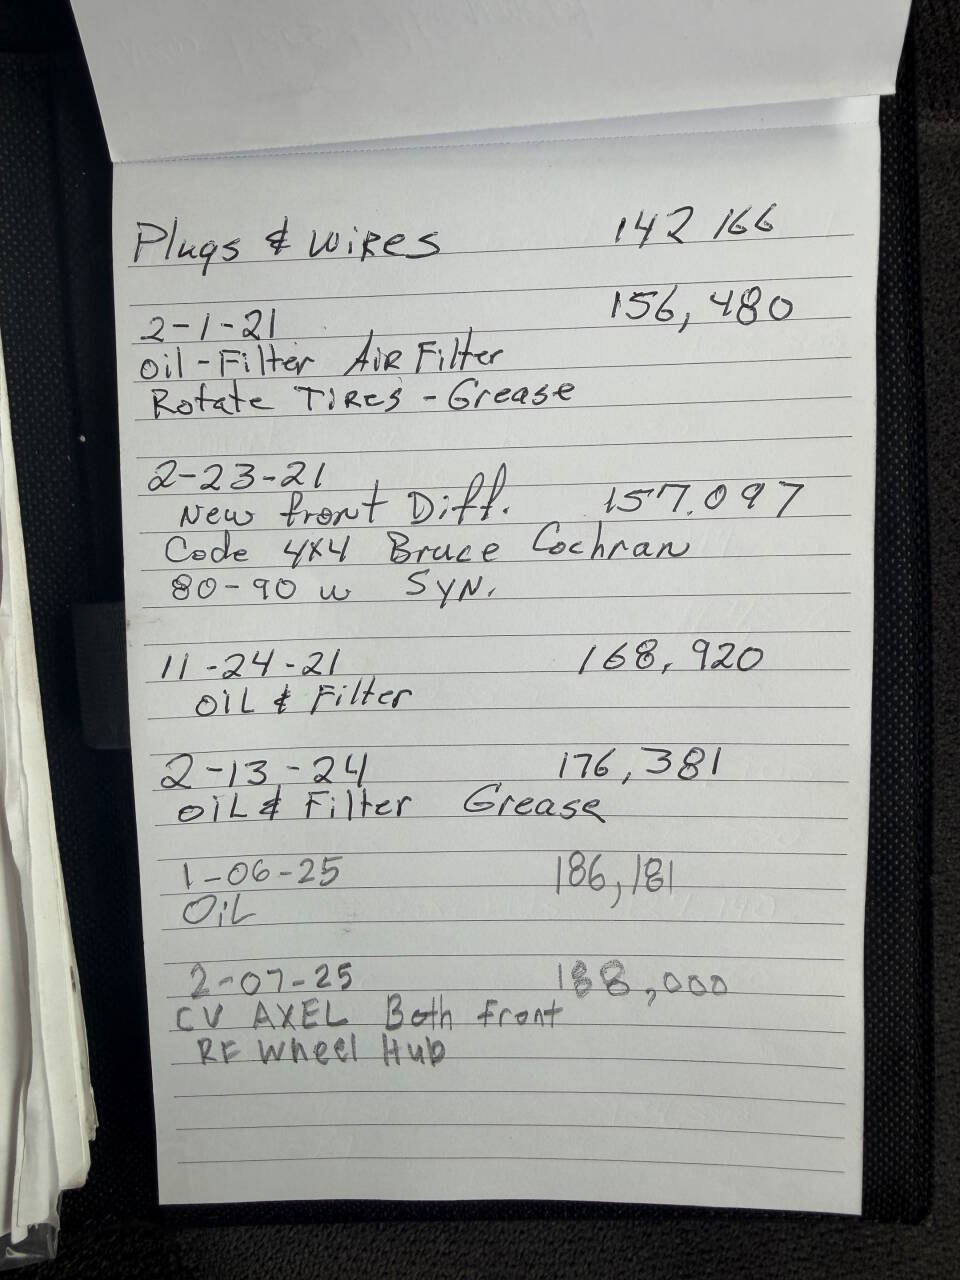 Plugs & wires 142 166
2-1-21 156,480
oil-Filter Air Filter
Rotate Tires - Grease
2-23-21
New front Diff. 157.097
Code 4x4 Bruce Cochran
80-90 w SYN.
11-24-21 168,920
OIL & Filter
2-13-24 176,381
OIL & Filter Grease
1-06-25 186,181
OiL
2-07-25 188,000
CV AXEL Both Front
RF Wheel Hub